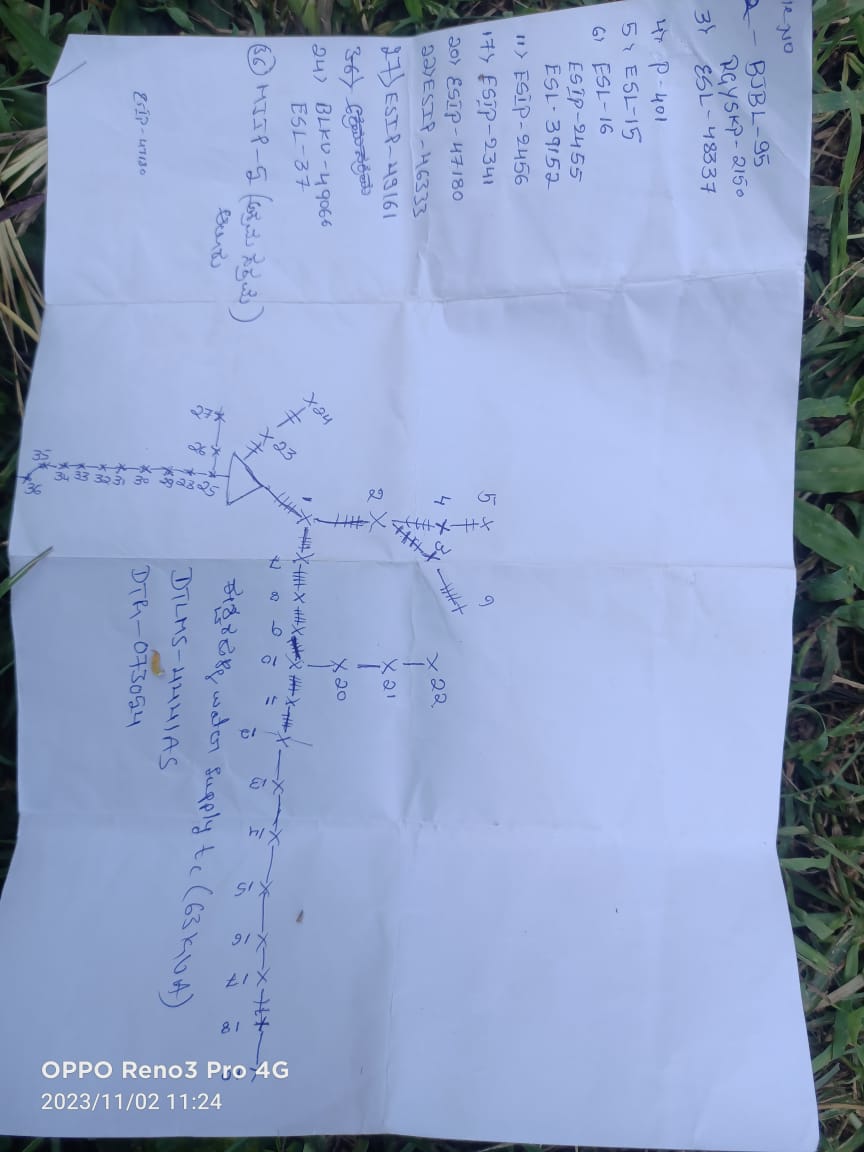 R.NO
2 - BJBL-95
RGYSKP-2150
3) ESL-48337
4) P-401
5) ESL-15
6) ESL-16
ESIP-2455
ESL-39152
11) ESIP-2456
17) ESIP-2341
20) ESIP-47180
22) ESIP-46333
27) ESIP-49161
36)
24) BLKV-49066
ESL-37
36 MIIP-5
ESIP-47180
24
23
27
26
25
28
29
30
31
32
33
34
35
36
1
2
3
4
5
6
7
8
9
10
11
12
13
14
15
16
17
18
19
20
21
22
water supply tc (63 KVA)
DTLMS-4441AS
DTR-073054
OPPO Reno3 Pro 4G
2023/11/02 11:24